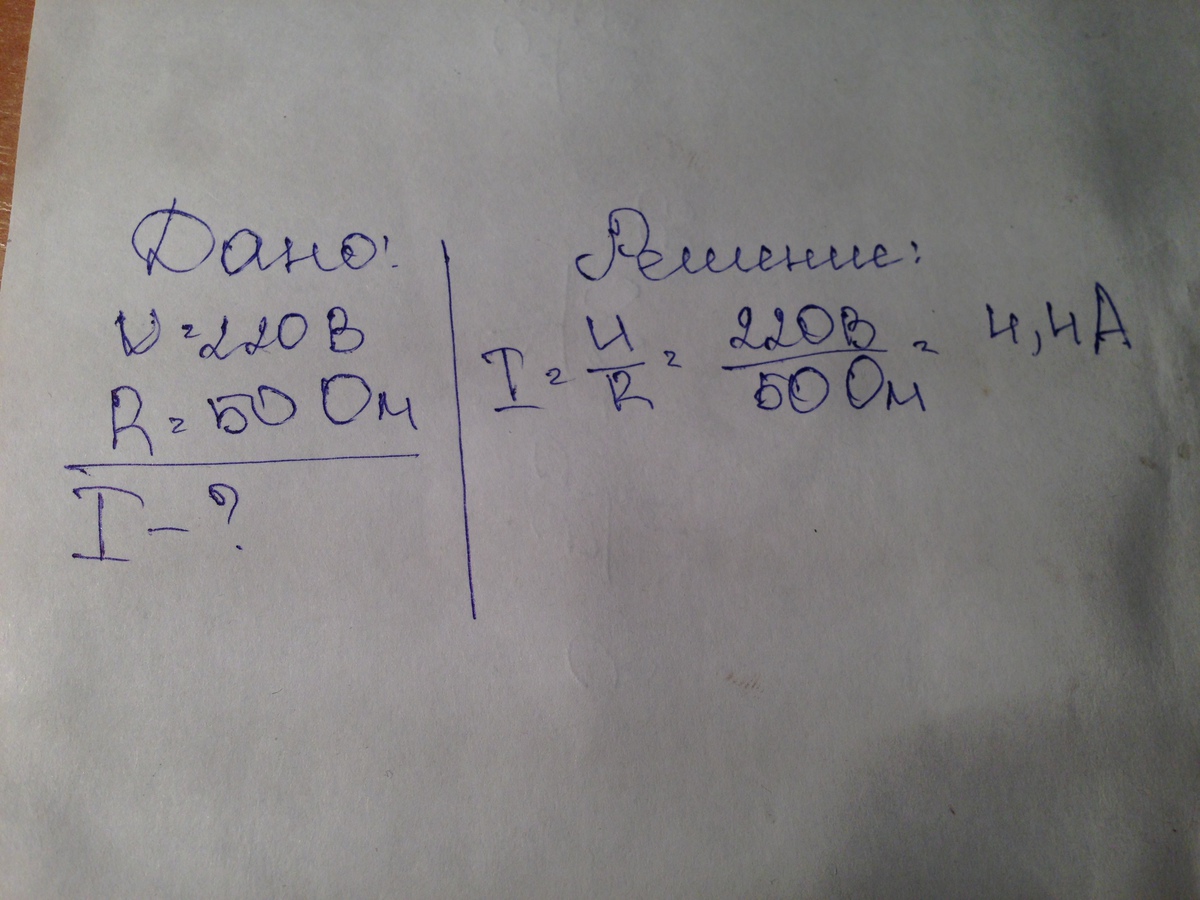 Дано:
U=220В
R=50 Ом
I-?
Решение:
I = U/R = 220В/50 Ом = 4,4А